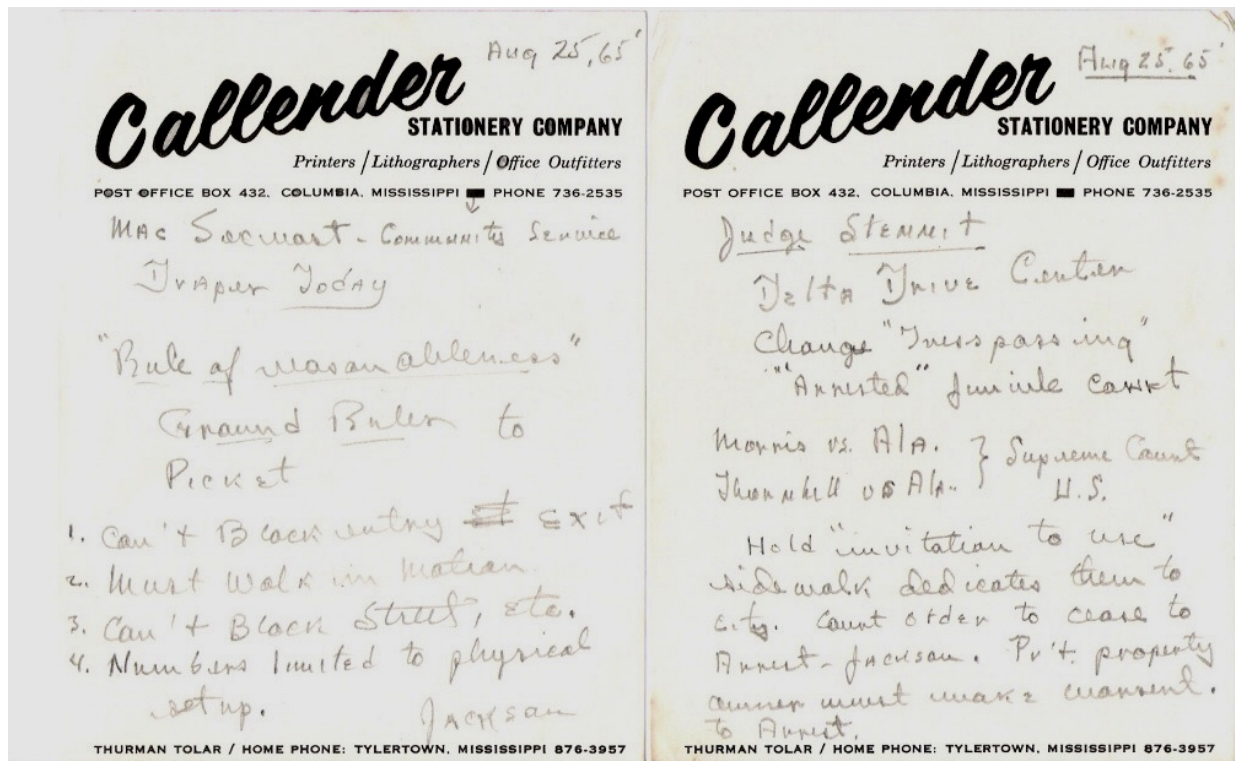 Aug 25, 65'
Callender
STATIONERY COMPANY
Printers / Lithographers / Office Outfitters
POST OFFICE BOX 432, COLUMBIA, MISSISSIPPI PHONE 736-2535
Mac - Community Service
Draper Today
"Rule of reasonableness"
Ground Rules to
Picket
1. Can't Block entry Exit
2. Must Walk in Motion
3. Can't Block Street, etc.
4. Numbers limited to physical
setup.
Jackson
THURMAN TOLAR / HOME PHONE: TYLERTOWN, MISSISSIPPI 876-3957
Aug 25, 65'
Callender
STATIONERY COMPANY
Printers / Lithographers / Office Outfitters
POST OFFICE BOX 432, COLUMBIA, MISSISSIPPI PHONE 736-2535
Judge Stennit
Delta Drive Center
Change "Tresspassing"
"Arrested" Court
Morris vs. Ala. } Supreme Court
Thornhill vs Ala. U.S.
Hold "invitation to use"
sidewalk dedicates them to
city. Court order to cease to
Arrest - Jackson. Pv't. property
owner must make warrent.
to Arrest.
THURMAN TOLAR / HOME PHONE: TYLERTOWN, MISSISSIPPI 876-3957